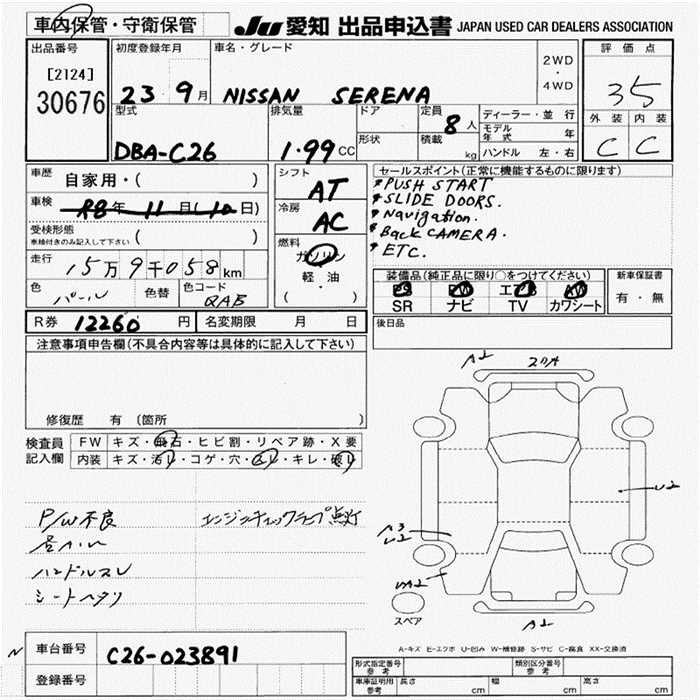 車内保管・守衛保管
JU 愛知 出品申込書 JAPAN USED CAR DEALERS ASSOCIATION
出品番号
[2124]
30676
初度登録年月
23 9月
車名・グレード
NISSAN SERENA
2WD
・
4WD
評価点
35
外装 内装
C C
型式
DBA-C26
排気量
1.99 CC
ドア
形状
定員
8人
積載
kg
ディーラー・並行
モデル年式 年
ハンドル 左・右
車歴
自家用・( )
車検
R8年 11月(10日)
受検形態
車検付きのみ記入して下さい ( )
走行
15万9千058km
色
パール
色替
色コード
QAB
シフト
AT
冷房
AC
燃料
ガソリン
軽・油
( ・ )
セールスポイント(正常に機能するものに限ります)
*PUSH START
*SLIDE DOORS.
*Navigation.
*Back CAMERA.
*ETC.
装備品(純正品に限り○をつけてください)
PS PW エアB AW
SR ナビ TV カワシート
新車保証書
有・無
R券 12260円
名変期限 月 日
後日品
注意事項申告欄(不具合内容等は具体的に記入して下さい)
修復歴 有 (箇所 )
検査員
記入欄
FW キズ・飛石・ヒビ割・リペア跡・X要
内装 キズ・汚レ・コゲ・穴・ムレ・キレ・破レ
P/W不良
エンジンチェックランプ点灯
ハンドルスレ
シートヘタリ
A2
スリA
U2
A3
U2
UA2
A2
スペア
A-キズ E-エクボ U-凹み W-補修跡 S-サビ C-腐食 XX-交換済
N
車台番号
C26-023891
登録番号
形式指定番号
参考
類別区分番号
参考
車庫証明用
参考
長さ cm
幅 cm
高さ cm